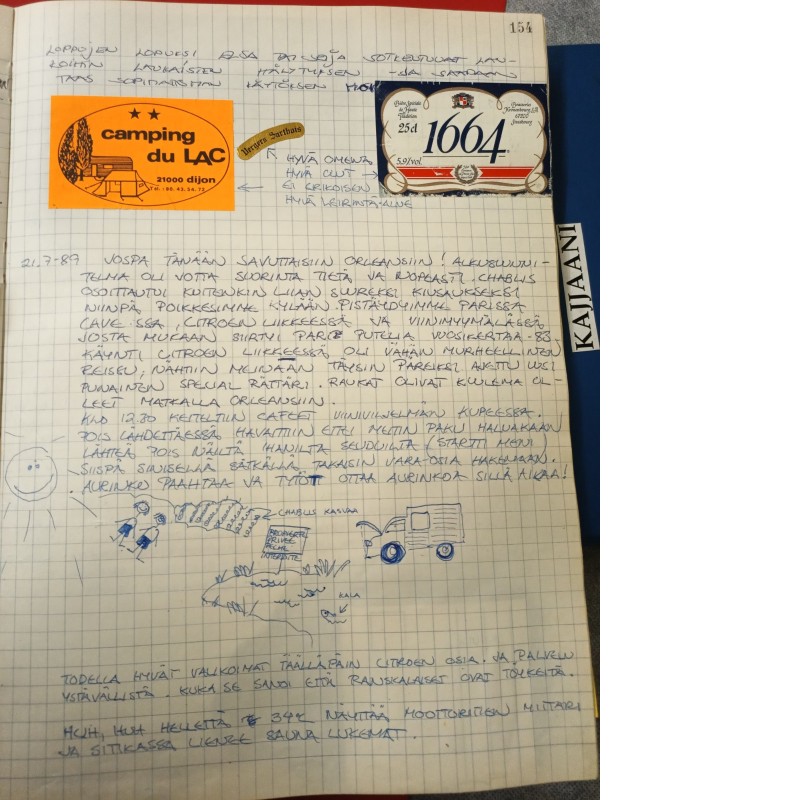 154
LOPPUJEN LOPUKSI ELSA TAI SEIJA SOTKEUTUVAT LAN-
KOIHIN LAUKAISTEN HÄLYTYKSEN JA SAADAAN
TAAS SOPIMATTOMAN KÄYTÖKSEN
★★
camping
du LAC
21000 dijon
Vergers Sarthois
Bière Spéciale
25cl
1664
5.9%vol.
Brasserie
Kronenbourg
67200
Strasbourg
HYVÄ OMENA
HYVÄ OLUT →
← EI ERIKOISEN
HYVÄ LEIRINTÄ-ALUE
KAJJAANI
21.7-89 JOSPA TÄNÄÄN SAVUTTAISIIN ORLEANSIIN! ALKUSUUNNI-
TELMA OLI VOTTA SUORINTA TIETÄ JA NOPEASTI. CHABLIS
OSOITTAUTUI KUITENKIN LIIAN SUUREKSI KIUSAUKSEKSI
NIINPÄ POIKKESIMME KYLÄÄN. PISTÄYDYIMME PARISSA
CAVE:ISSA, CITROEN LIIKKEESSÄ JA VIINIMYYMÄLÄSSÄ
JOSTA MUKAAN SIIRTYI PARI PUTELIA VUOSIKERTAA -83
KÄYNTI CITROEN LIIKKEESSÄ OLI VÄHÄN MURHEELLINEN
REISSU, NÄHTIIN MEINAAN TÄYSIN PÄREIKSI AJETTU UUSI
PUNAINEN SPECIAL RÄTTÄRI. RAUKAT OLIVAT KUULEMA OL-
LEET MATKALLA ORLEANSIIN.
KLO 12.30 KEITELTIIN CAFEET VIINIVILJELMÄN KUPEESSA.
POIS LÄHDETTÄESSÄ HAVAITTIIN ETTEI MEITIN PAKU HALUAKAAN
LÄHTEÄ POIS NÄILTÄ IHANILTA SEUDUILTA (STARTTI MENI)
SIISPÄ SINISELLÄ SÄTKÄLLÄ TAKAISIN VARA-OSIA HAKEMAAN.
AURINKO PAAHTAA JA TYTÖT OTTAA AURINKOA SILLÄ AIKAA!
← CHABLIS KASVAA
PROPRIETE
PRIVEE
PECHE
INTERDITE
KALA
TODELLA HYVÄT VALIKOIMAT TÄÄLLÄPÄIN CITROEN OSIA. JA PALVELU
YSTÄVÄLLISTÄ. KUKA SE SANOI ETTÄ RANSKALAISET OVAT TÖYKEITÄ.
HUH, HUH HELLETTÄ 34°C NÄYTTÄÄ MOOTTORITIEN MITTARI
JA SITIKASSA LIENEE SAUNA LUKEMAT.